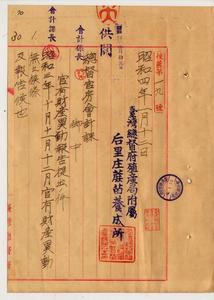 供閱
會計課長
會計係長
發第一九號
昭和四年一月十二日
臺灣總督府殖產局附屬
后里庄蔗苗養成所
總督官房會計課
御中
官有財產異動報告提出ノ件
昭和三年十月十一月十二月官有財產異動
無之候條
及報告候也